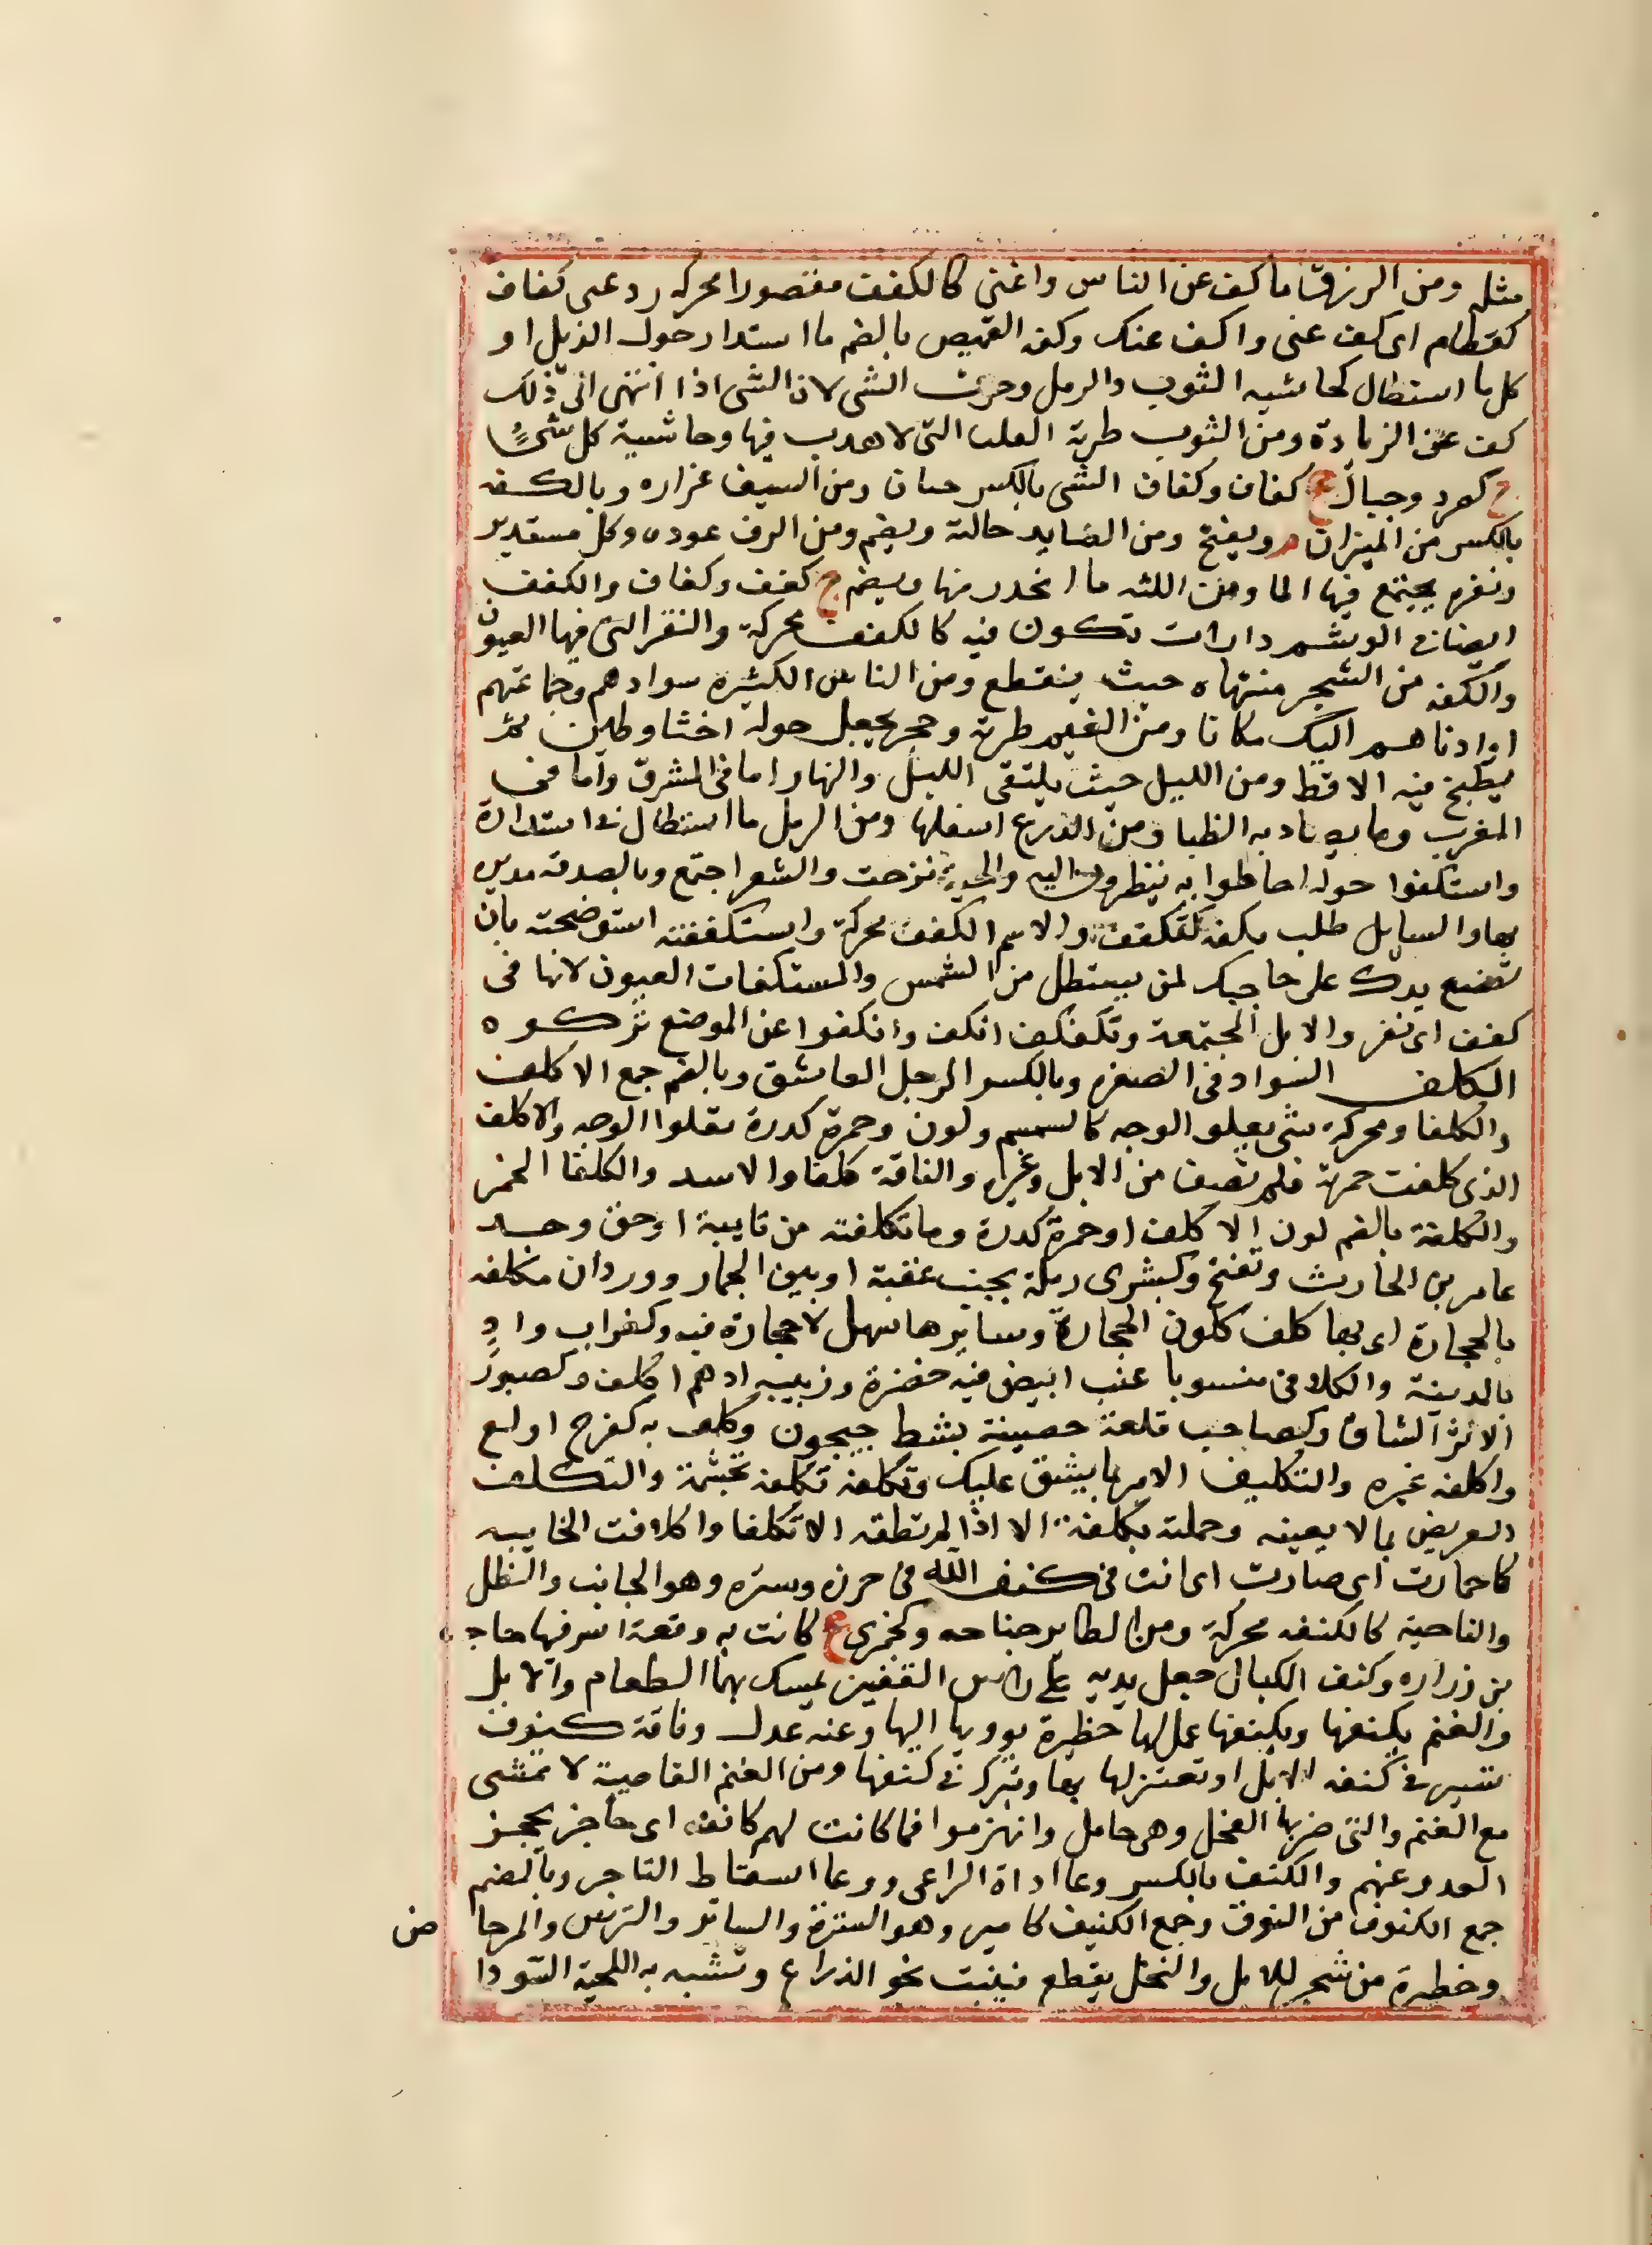 مثله ومن الرزق ما كف عن الناس واغنى كالكفف مقصورا محركة ودعنى كفاف
كقطام اى كف عنى واكف عنك وكفة القميص بالضم ما استدار حول الذيل او
كل ما استطال كحاشية الثوب والرمل وحرف الشى لان الشى اذا انتهى الى ذلك
كف عن الزيادة ومن الثوب طرته العليا التى لا هدب فيها وحاشية كل شئ
ج كصرد وجبال ج كفاف وكفاف الشى بالكسر حتاره ومن السيف غراره وبالكسفه
بالكسر من الميزان م ويفتح ومن الصايد حبالته ويضم ومن الدف عوده وكل مستدير
ونقرة يجتمع فيها الما ومن اللثة ما انحدر منها ويضم ج كفف وكفاف والكفف
ايضا فى الوشم دارات تكون فيه كالكفف محركة والنقر التى فيها العيون
والكفة من الشجر منتهاه حيث ينقطع ومن الناس الكثيرة سوادهم وجماعتهم
او ادناهم اليك مكانا ومن الغيم طرته وحجر يجعل حوله اخثا وطين ثم
يطبخ فيه الاقط ومن الليل حيث يلتقى الليل والنهار اما فى المشرق واما فى
المغرب وما يصاد به الظبا ومن الدرع اسفلها ومن الرمل ما استطال فى استدارة
واستكفوا حوله احاطوا به ينظرون اليه والحية ترحت والشعر اجتمع وبالصدقة مد يده
بها والسايل طلب بكفه كتكفف والاسم الكفف محركة واستكففته استوضحته بان
تضع يدك على حاجبك لمن يستظل من الشمس والمستكفات العيون لانها فى
كفف اى نقر والابل المجتمعة وتكفكف انكف وانكفوا عن الموضع تركوه
الكلف السواد فى الصفرة وبالكسر الرجل العاشق وبالضم جمع الاكلف
والكلفا ومحركة شى يعلو الوجه كالسمسم ولون وحمرة كدرة تعلوا الوجه والاكلف
الذى كلفت حمرته فلم تصف من الابل وغيره والناقة كلفا والاسد والكلفا الخمر
والكلفة بالضم لون الاكلف او حمرة كدرة وما تكلفته من نايبة او حق وجد
عامر بن الحارث وتفتح وكبشرى رملة بجنب غيقة او بين الجار وودان مكلفه
بالحجارة اى بها كلف كلون الحجارة وسايرها سهل لا حجارة فيه وكغراب واد
بالمدينة والكلافى منسوبا عنب ابيض فيه خضرة وزبيبه ادهم اكلف وكصبور
الامر الشاق وكصاحب قلعة حصينة بشط جيجون وكلف به كفرح اولع
واكلفه غيره والتكليف الامر بما يشق عليك وتكلفه تكلفه تجشمة والتكلف
العريض بما لا يعينه وحملته تكلفة الا اذا لم تطقه الا تكلفا واكلافت الخابيه
كاحمارت اى صارت اى انت فى كنف الله فى حرزه وستره وهو الجانب والظل
والناحية كالكنفه محركة ومن الطاير جناحه وكجمزى ع كانت به وقعة اسر فيها حاجب
بن زرارة وكنف الكيال جعل يديه على راس القفيز يمسك بهما الطعام والابل
والغنم يكنفها ويكنفها عمل لها حظيرة يوويها اليها وعنه عدل وناقة كنوف
تسير فى كنفة الابل او تعتزلها بها وتبرك فى كنفها ومن الغنم القاصية لا تمشى
مع الغنم والتى ضربها الفحل وهى حامل وانهزموا فما كانت لهم كانفه اى حاجز يحجز
العدو عنهم والكنف بالكسر وعا اداة الراعى ووعا اسقاط التاجر وبالضم
جمع الكنوف من النوق وجمع الكنيف كامير وهو السترة والساتر والترس والمرحاض
وحظيرة من شجر للابل والنخل يقطع فينبت نحو الذراع وتشبه به اللحية السودا